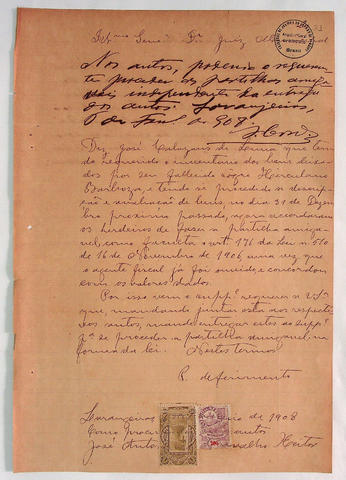 Ill.mo Senr. Dr. Juiz Municipal
Nos autos, podendo o requeren-
te proceder as partilhas amiga-
veis independente da entrega
dos autos. Laranjeiras,
de 908
Diz José Calazans de que tendo
requerido o inventario dos bens deixa-
dos por seu fallecido sogro Herculano
Barboza, e tendo se procedido a descrip-
ção e avaliação de bens, no dia 31 de Dezem-
bro proximo passado, agora accordaram
os herdeiros de fazer a partilha amiga-
vel, como faculta o art. 176 da Lei n. 510
de 16 de Novembro de 1906 uma vez que
o agente fiscal já foi ouvido e concordou
com os valores dados.
Por isso vem o suppe. requerer a V. Sa.
que, mandando juntar esta aos respecti-
vos autos, mande entregar estes ao suppe.
pa. se proceder a partilha amigavel na
forma da lei. Nestes termos
P. deferimento
Laranjeiras de 1908
Como
José Anto Carvalho